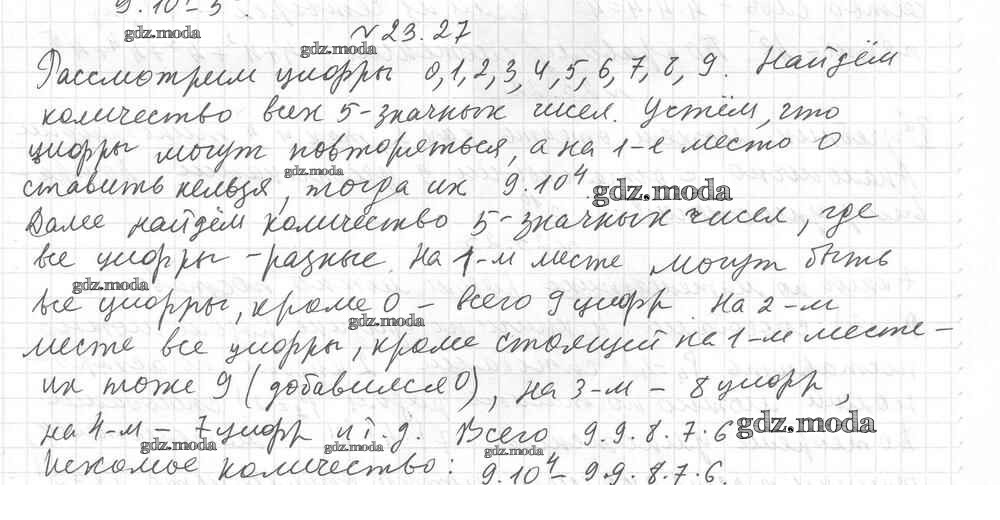 9.10⁴-5
gdz.moda
№ 23.27
gdz.moda
Рассмотрим цифры 0,1,2,3,4,5,6,7,8,9. Найдём
количество всех 5-значных чисел. Учтём, что
цифры могут повторяться, а на 1-е место 0
gdz.moda
ставить нельзя, тогда их 9.10⁴.
gdz.moda
Далее найдём количество 5-значных чисел, где
все цифры - разные. На 1-м месте могут быть
gdz.moda
все цифры, кроме 0 - всего 9 цифр. На 2-м
gdz.moda
месте все цифры, кроме стоящей на 1-м месте -
их тоже 9 (добавился 0), на 3-м - 8 цифр,
на 4-м - 7 цифр и т.д. Всего 9.9.8.7.6
gdz.moda
gdz.moda
gdz.moda
gdz.moda
Искомое количество: 9.10⁴-9.9.8.7.6.